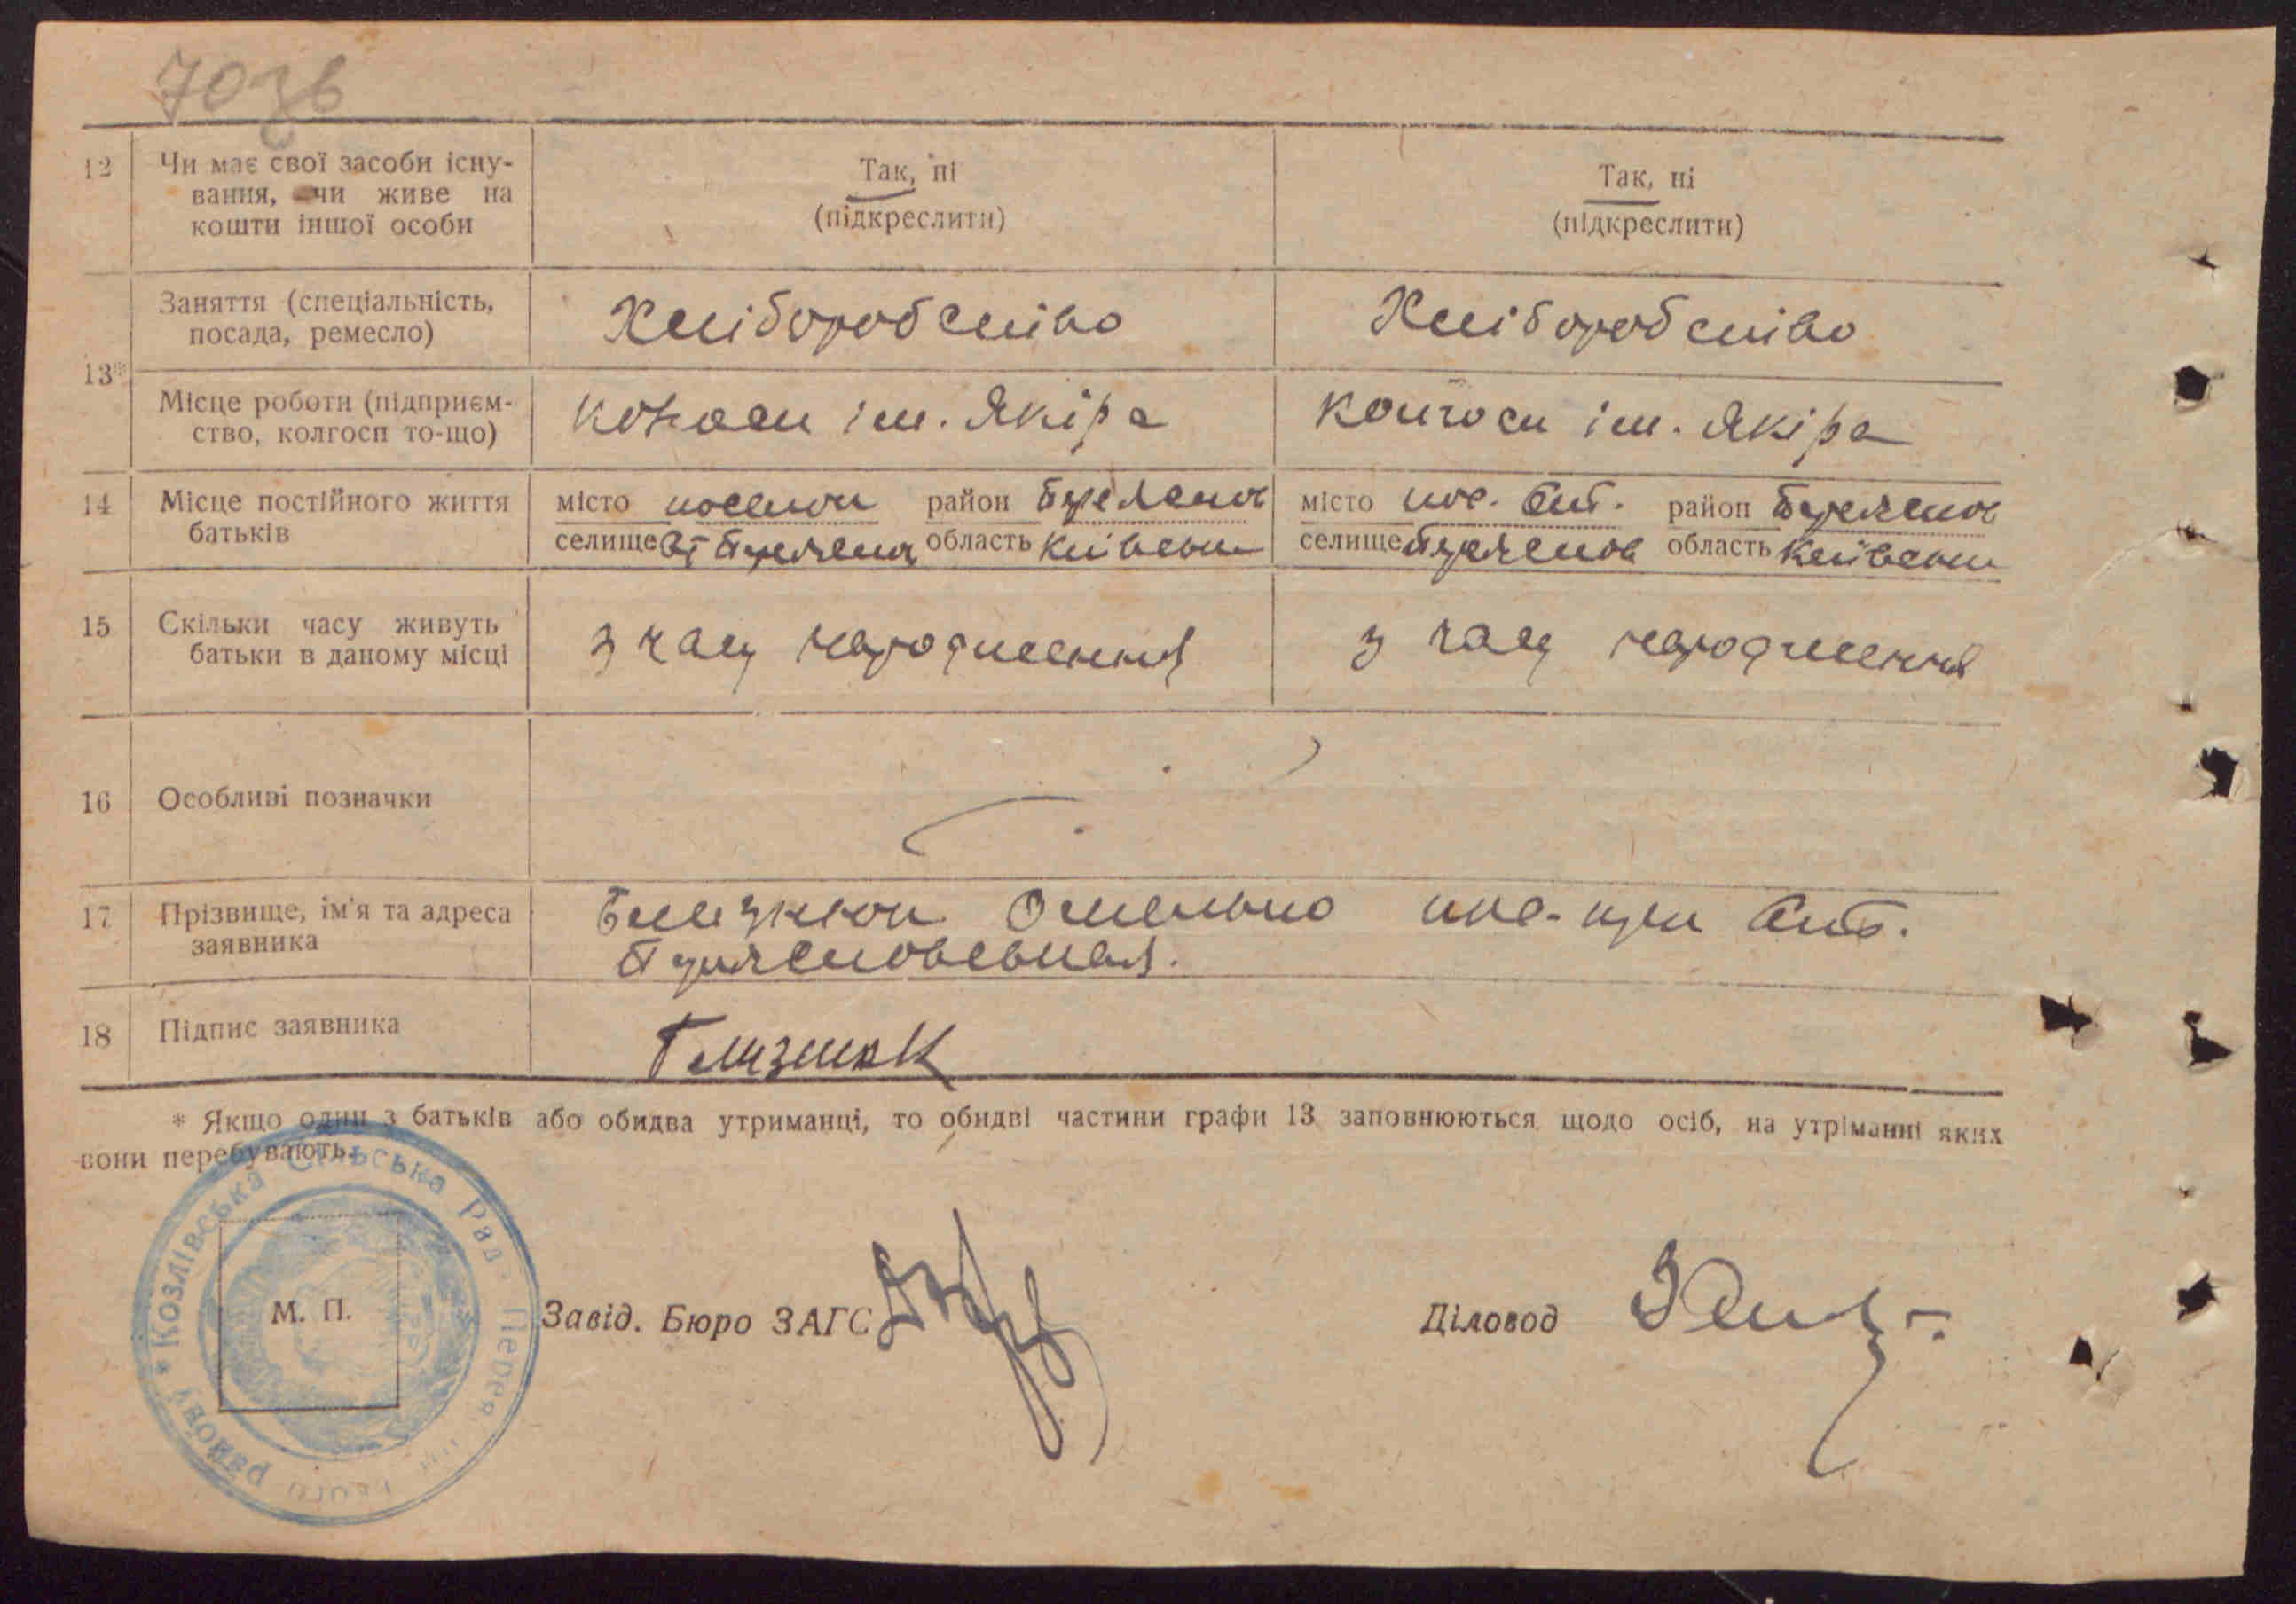 70зв
12 Чи має свої засоби існу-
вання, чи живе на
кошти іншої особи
Так, ні
(підкреслити)
Так, ні
(підкреслити)
13*
Заняття (спеціальність,
посада, ремесло)
Хліборобство
Хліборобство
Місце роботи (підприєм-
ство, колгосп то-що)
колгосп ім. Якіра
колгосп ім. Якіра
14 Місце постійного життя
батьків
місто район
селище область Київськ
місто район
селище область Київськ
15 Скільки часу живуть
батьки в даному місці
з часу народження
з часу народження
16 Особливі позначки
17 Прізвище, ім'я та адреса
заявника
Близнюк Омелько при
18 Підпис заявника
Близнюк
* Якщо один з батьків або обидва утриманці, то обидві частини графи 13 заповнюються щодо осіб, на утріманні яких
вони перебувають.
* Козлівська Сільська Рад
району
М. П.
Завід. Бюро ЗАГС
Діловод